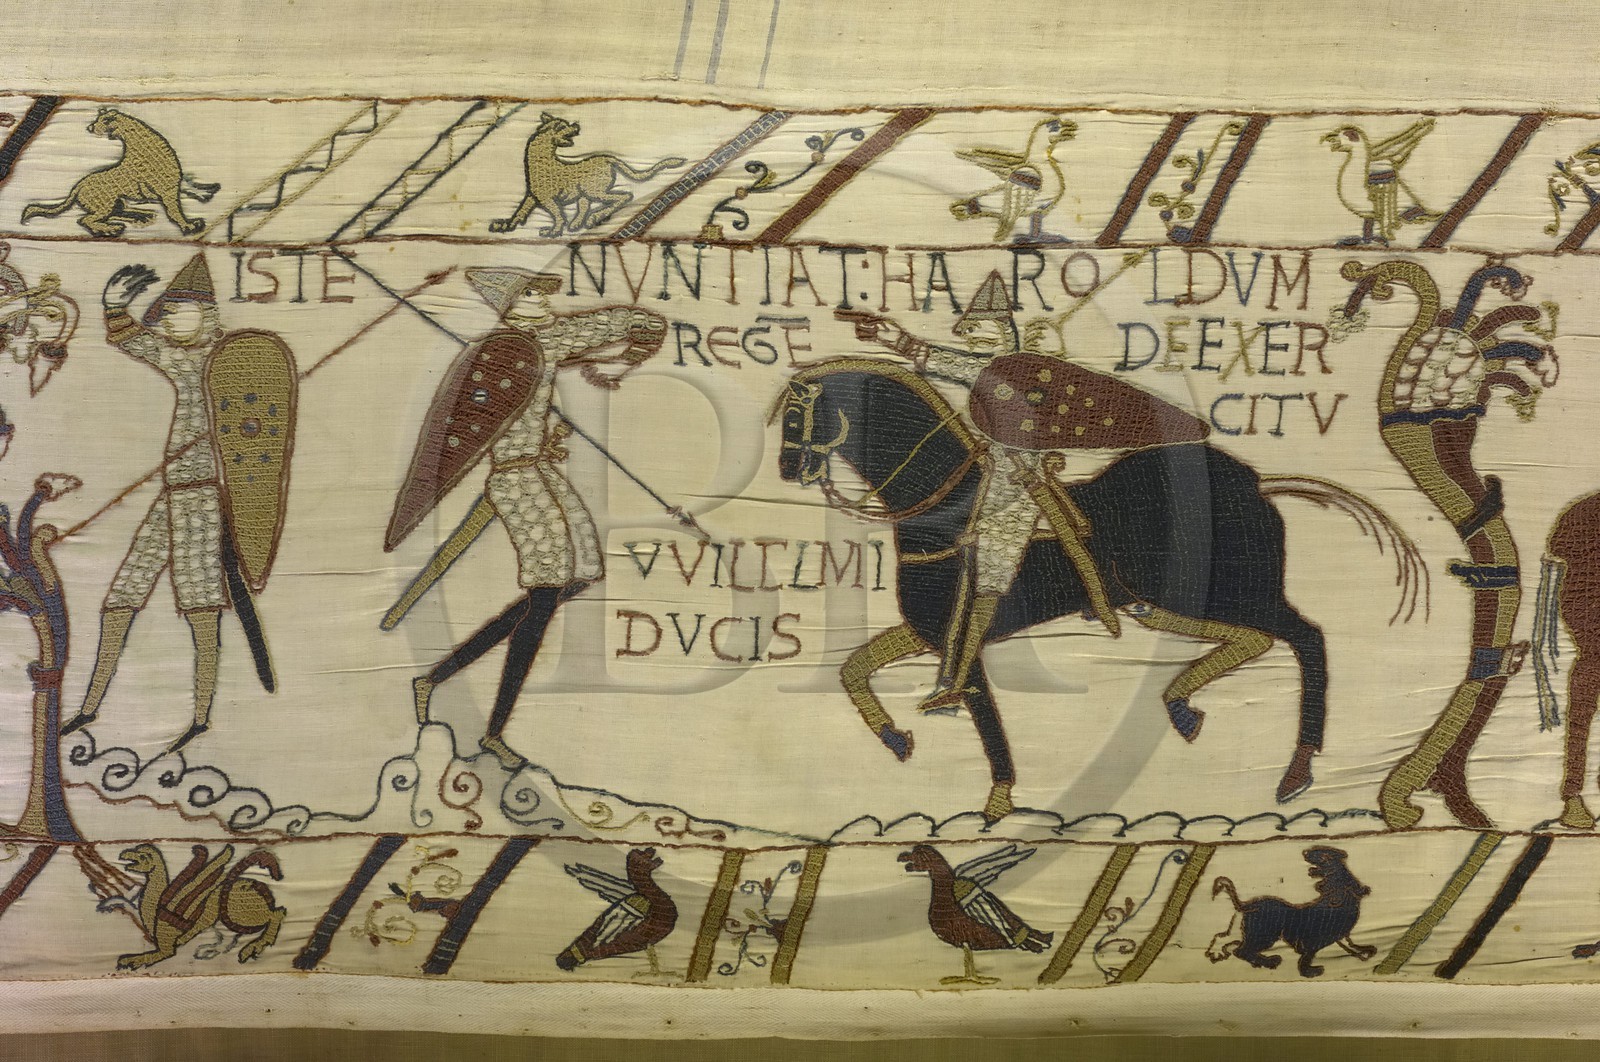 ISTE NVNTIAT: HAROLDVM
REGĒ DE EXER
CITV
VVILELMI
DVCIS